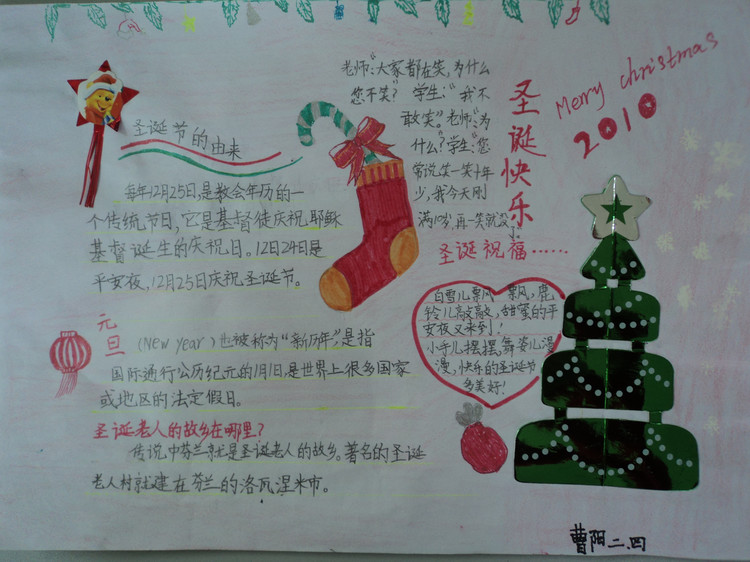 圣诞节的由来
每年12月25日,是教会年历的一
个传统节日,它是基督徒庆祝耶稣
基督诞生的庆祝日。12日24日是
平安夜,12月25日庆祝圣诞节。
元旦
(New year)也被称为“新历年”,是指
国际通行公历纪元的1月1日,是世界上很多国家
或地区的法定假日。
圣诞老人的故乡在哪里?
传说中芬兰就是圣诞老人的故乡。著名的圣诞
老人村就建在芬兰的洛瓦涅米市。
老师:“大家都在笑,为什么
您不笑?”学生:“我不
敢笑。”老师:“为
什么?”学生:“您
常说,笑一笑十年
少,我今天刚
满10岁,再一笑就没了
圣诞快乐
Merry christmas
2010
圣诞祝福……
白雪儿飘飘,鹿
铃儿敲敲,甜蜜的平
安夜又来到!
小手儿摆摆,舞姿儿漫
漫,快乐的圣诞节
多美好!
曹阳二.四